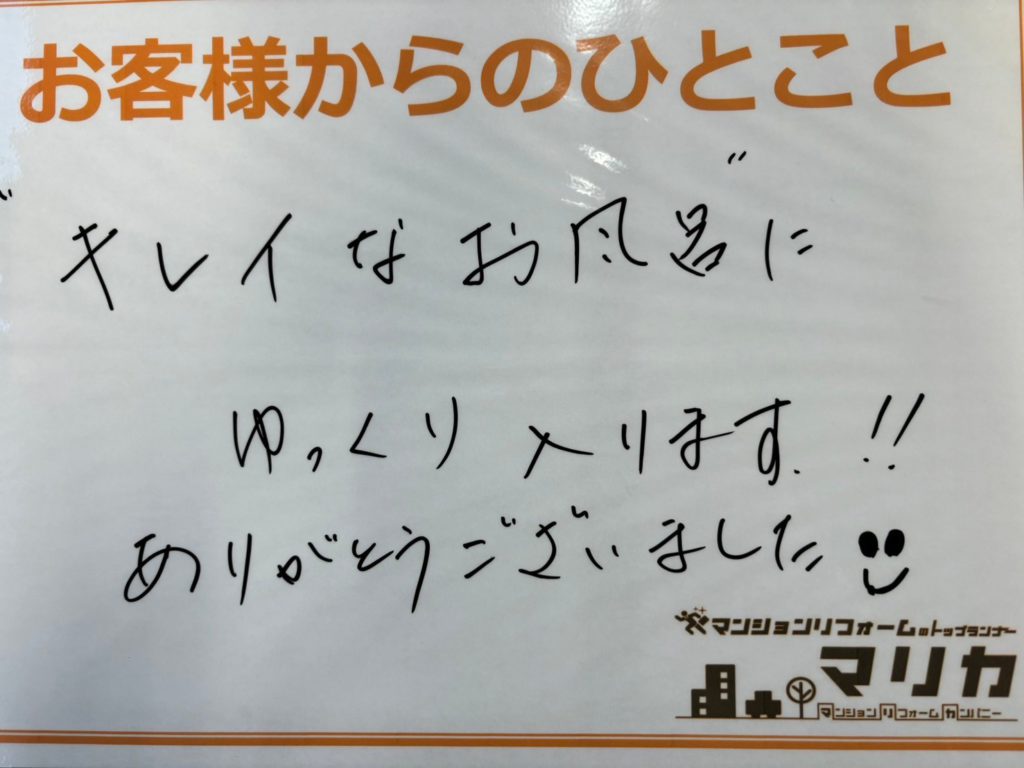 お客様からのひとこと
"キレイなお風呂"に
ゆっくり入ります.!!
ありがとうございました
マンションリフォームのトップランナー
マリカ
マンションリフォームカンパニー